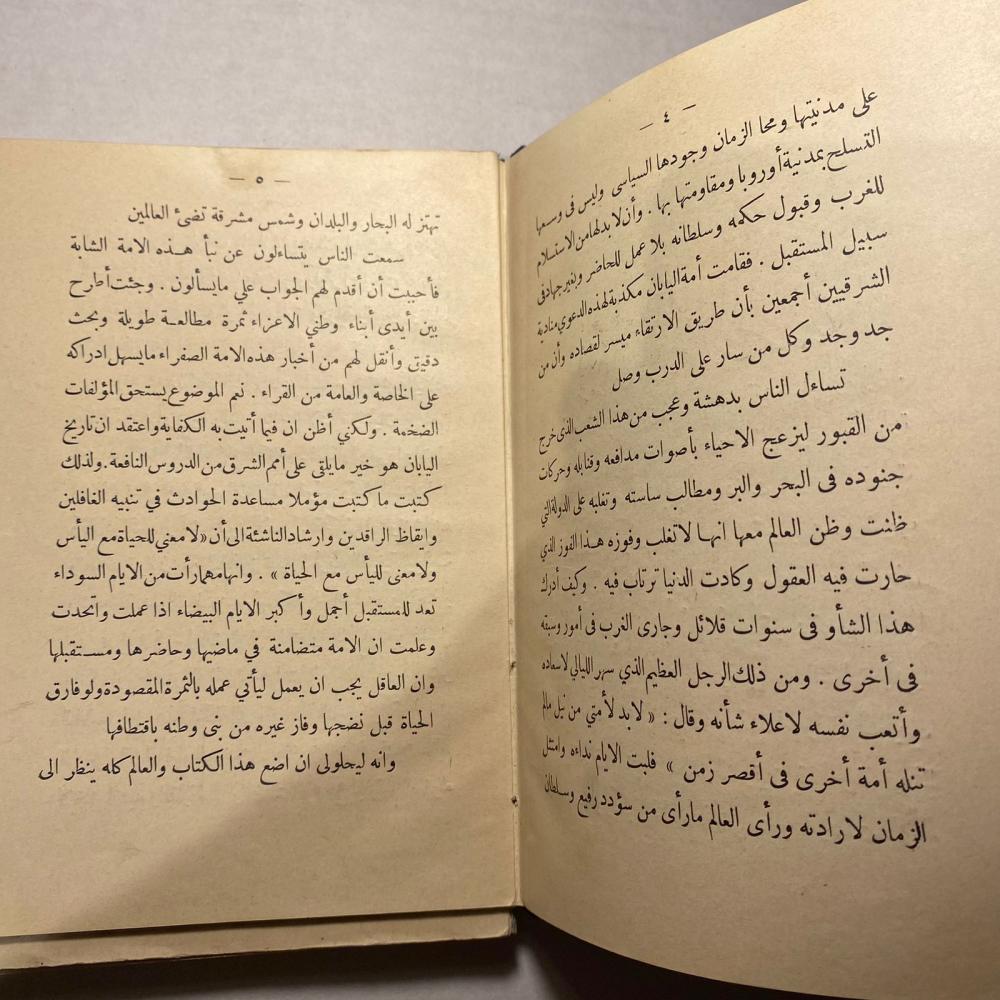 — ٤ —
على مدنيتها ومحا الزمان وجودها السياسى وليس فى وسعها
التسلح بمدنية أوروبا ومقاومتها بها . وأن لا بد لها من الاستسلام
للغرب وقبول حكمه وسلطانه بلا عمل للحاضر وبغير جهاد فى
سبيل المستقبل . فقامت أمة اليابان مكذبة لهذه الدعوي منادية
الشرقيين أجمعين بأن طريق الارتقاء ميسر لقصاده وأن من
جد وجد وكل من سار على الدرب وصل
تساءل الناس بدهشة وعجب من هذا الشعب الذى خرج
من القبور ليزعج الاحياء بأصوات مدافعه وقنابله وحركات
جنوده فى البحر والبر ومطالب ساسته وتغلبه على الدولة التي
ظنت وظن العالم معها انها لا تغلب وفوزه هذا الفوز الذي
حارت فيه العقول وكادت الدنيا ترتاب فيه . وكيف أدرك
هذا الشأو فى سنوات قلائل وجارى الغرب فى أمور وسبقه
فى أخرى . ومن ذلك الرجل العظيم الذي سهر الليالي لاسعاده
وأتعب نفسه لاعلاء شأنه وقال : « لا بد لأمتي من نيل مالم
تنله أمة أخرى فى أقصر زمن » فلبت الايام نداءه وامتثل
الزمان لارادته ورأى العالم مارأى من سؤدد رفيع وسلطان
— ٥ —
تهتز له البحار والبلدان وشمس مشرقة تضئ العالمين
سمعت الناس يتساءلون عن نبأ هذه الامة الشابة
فأحببت أن أقدم لهم الجواب علي مايسألون . وجئت أطرح
بين أيدى أبناء وطني الاعزاء ثمرة مطالعة طويلة وبحث
دقيق وأنقل لهم من أخبار هذه الامة الصفراء مايسهل ادراكه
على الخاصة والعامة من القراء . نعم الموضوع يستحق المؤلفات
الضخمة . ولكني أظن ان فيما أتيت به الكفاية واعتقد ان تاريخ
اليابان هو خير مايلقى على أمم الشرق من الدروس النافعة . ولذلك
كتبت ما كتبت مؤملا مساعدة الحوادث في تنبيه الغافلين
وايقاظ الراقدين وارشاد الناشئة الى أن « لا معني للحياة مع اليأس
ولا معنى لليأس مع الحياة » . وانها مهما رأت من الايام السوداء
تعد للمستقبل أجمل وأكبر الايام البيضاء اذا عملت واتحدت
وعلمت ان الامة متضامنة في ماضيها وحاضرها ومستقبلها
وان العاقل يجب ان يعمل ليأتي عمله بالثمرة المقصودة ولو فارق
الحياة قبل نضجها وفاز غيره من بنى وطنه باقتطافها
وانه ليحلولى ان اضع هذا الكتاب والعالم كله ينظر الى